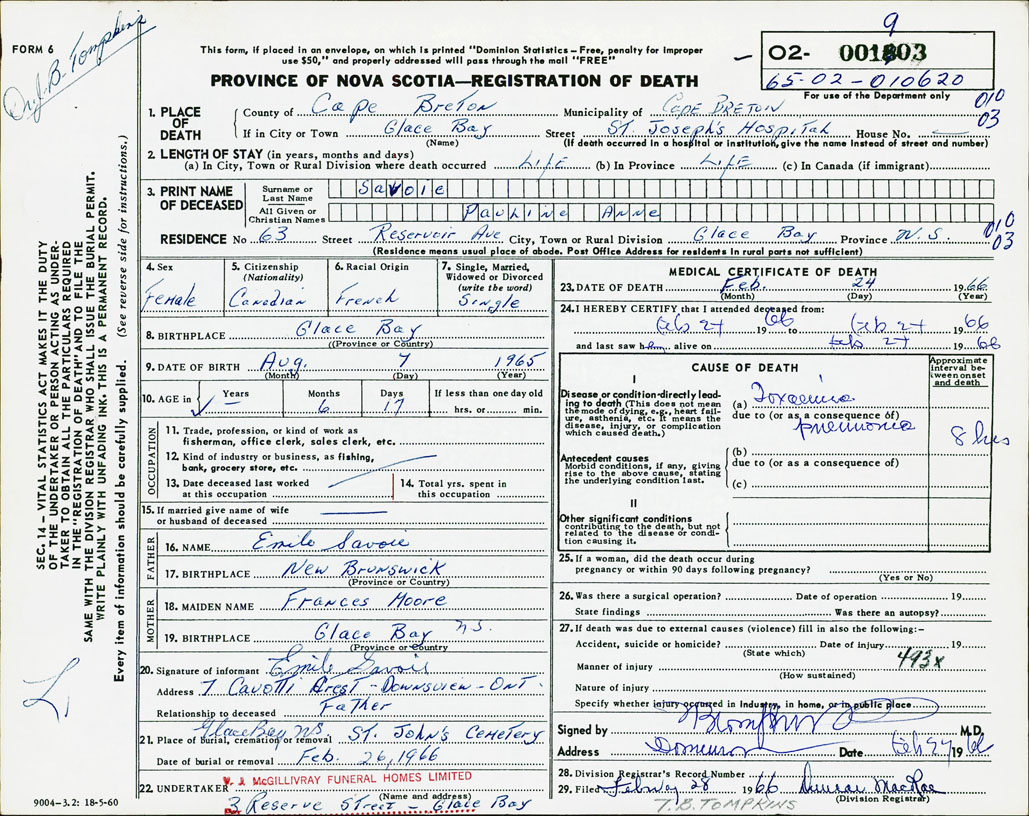 FORM 6
Dr. J. B. Tompkins
This form, if placed in an envelope, on which is printed "Dominion Statistics – Free, penalty for improper
use $50," and properly addressed will pass through the mail "FREE"
PROVINCE OF NOVA SCOTIA—REGISTRATION OF DEATH
9
02- 001803
65-02-010620
For use of the Department only
010
03
1. PLACE OF DEATH
County of Cape Breton Municipality of Cape Breton
If in City or Town Glace Bay Street St. Joseph's Hospital House No. —
(Name) (If death occurred in a hospital or institution, give the name instead of street and number)
2. LENGTH OF STAY (in years, months and days)
(a) In City, Town or Rural Division where death occurred Life (b) In Province Life (c) In Canada (if immigrant)
3. PRINT NAME OF DECEASED
Surname or Last Name Savoie
All Given or Christian Names Pauline Anne
010
03
RESIDENCE No. 63 Street Reservoir Ave City, Town or Rural Division Glace Bay Province N.S.
(Residence means usual place of abode. Post Office Address for residents in rural parts not sufficient)
4. Sex Female
5. Citizenship (Nationality) Canadian
6. Racial Origin French
7. Single, Married, Widowed or Divorced (write the word) Single
8. BIRTHPLACE Glace Bay
(Province or Country)
9. DATE OF BIRTH Aug. 7 1965
(Month) (Day) (Year)
10. AGE in Years – Months 6 Days 17 If less than one day old
hrs. or min.
OCCUPATION
11. Trade, profession, or kind of work as
fisherman, office clerk, sales clerk, etc.
12. Kind of industry or business, as fishing,
bank, grocery store, etc.
13. Date deceased last worked
at this occupation
14. Total yrs. spent in
this occupation
15. If married give name of wife
or husband of deceased —
FATHER
16. NAME Emile Savoie
17. BIRTHPLACE New Brunswick
(Province or Country)
MOTHER
18. MAIDEN NAME Frances Moore
19. BIRTHPLACE Glace Bay N.S.
(Province or Country)
20. Signature of informant Emile Savoie
Address 7 Cavotti Crest - Downsview - Ont.
Relationship to deceased Father
Glace Bay NS
21. Place of burial, cremation or removal St. John's Cemetery
Date of burial or removal Feb. 26, 1966
22. UNDERTAKER V. J. McGILLIVRAY FUNERAL HOMES LIMITED
(Name and address)
3 Reserve Street - Glace Bay
9004-3.2: 18-5-60
MEDICAL CERTIFICATE OF DEATH
23. DATE OF DEATH Feb. 24 1966
(Month) (Day) (Year)
24. I HEREBY CERTIFY that I attended deceased from:
Feb 24 1966 to Feb 24 1966
and last saw her alive on Feb 24 1966
CAUSE OF DEATH
Approximate interval between onset and death
I
Disease or condition directly leading to death (This does not mean the mode of dying, e.g., heart failure, asthenia, etc. It means the disease, injury, or complication which caused death.)
(a) Toxaemia
due to (or as a consequence of)
pneumonia
8 hrs
Antecedent causes
Morbid conditions, if any, giving rise to the above cause, stating the underlying condition last.
(b)
due to (or as a consequence of)
(c)
II
Other significant conditions
contributing to the death, but not related to the disease or condition causing it.
25. If a woman, did the death occur during
pregnancy or within 90 days following pregnancy?
(Yes or No)
26. Was there a surgical operation? Date of operation 19
State findings Was there an autopsy?
27. If death was due to external causes (violence) fill in also the following:–
Accident, suicide or homicide? Date of injury 19
(State which)
493x
Manner of injury
(How sustained)
Nature of injury
Specify whether injury occurred in industry, in home, or in public place
Signed by M.D.
Address Dominion Date Feb 24 1966
28. Division Registrar's Record Number
29. Filed February 28 1966 Duncan MacRae
(Division Registrar)
T.B. TOMPKINS
SEC. 14 – VITAL STATISTICS ACT MAKES IT THE DUTY
OF THE UNDERTAKER OR PERSON ACTING AS UNDER-
TAKER TO OBTAIN ALL THE PARTICULARS REQUIRED
IN THE "REGISTRATION OF DEATH" AND TO FILE THE
SAME WITH THE DIVISION REGISTRAR WHO SHALL ISSUE THE BURIAL PERMIT.
WRITE PLAINLY WITH UNFADING INK. THIS IS A PERMANENT RECORD.
Every item of information should be carefully supplied. (See reverse side for instructions.)